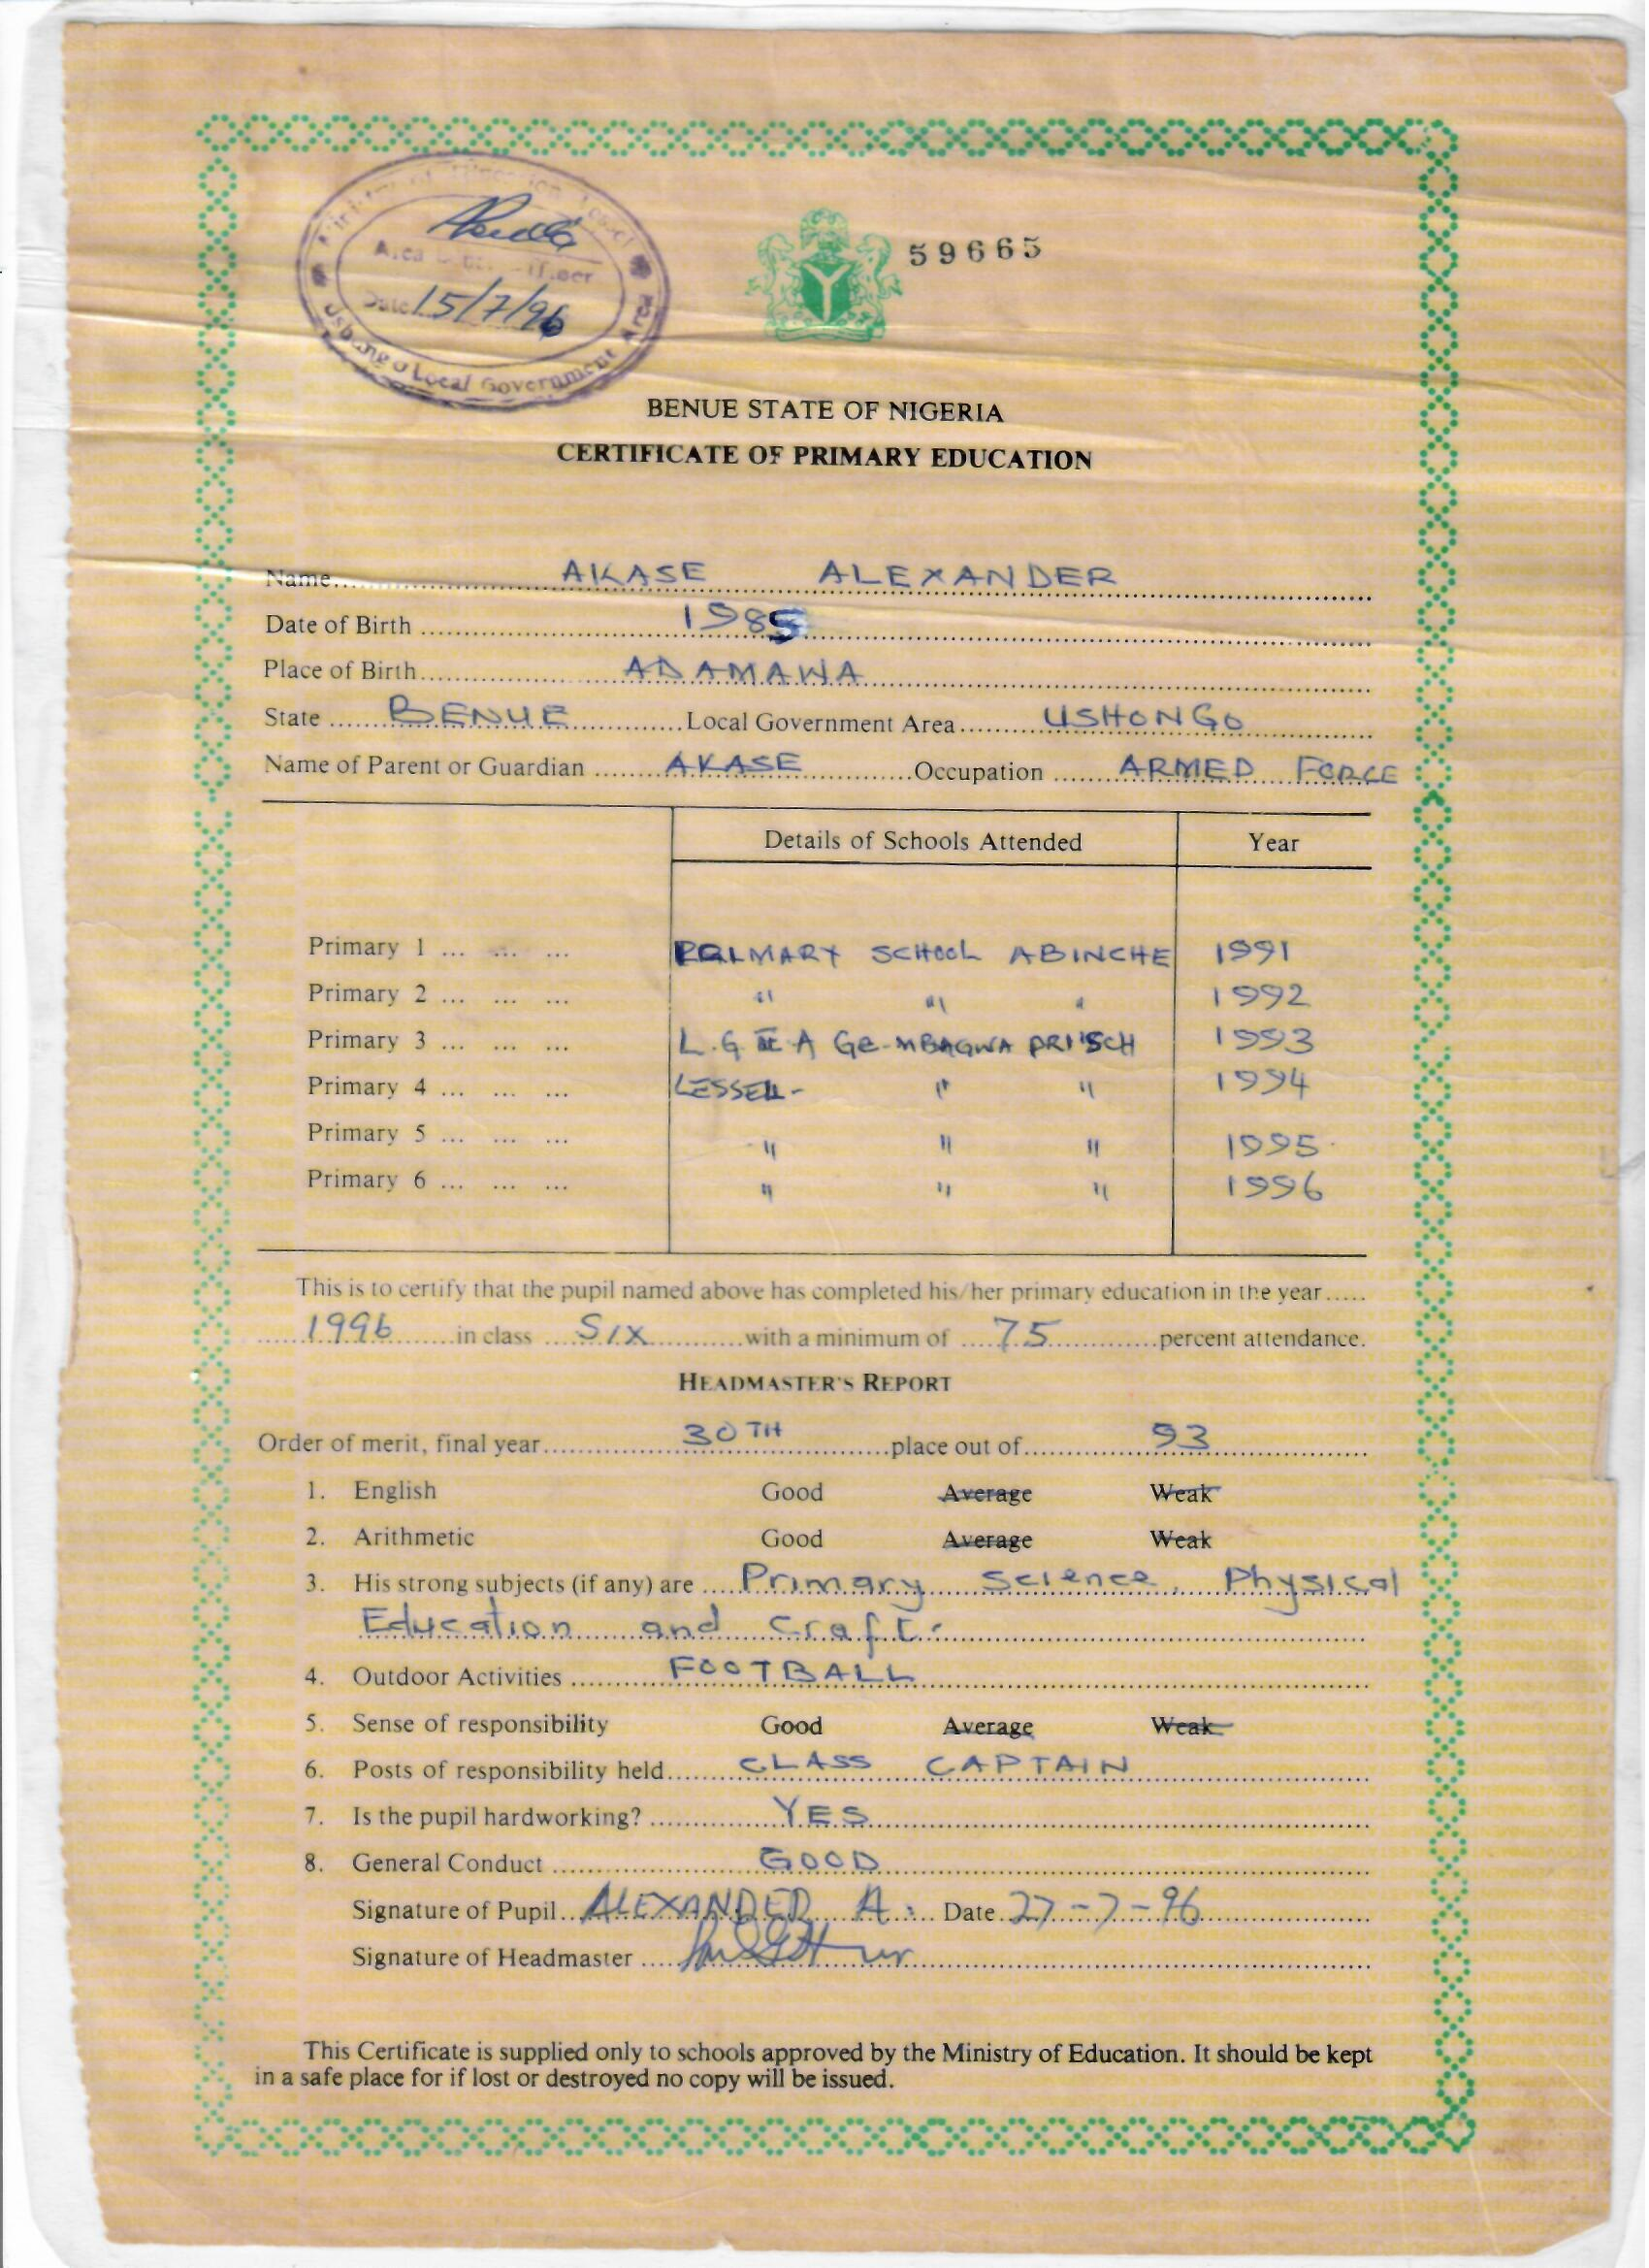 Ministry of Education Lessel
Area Officer
Date 15/7/96
Ushongo Local Government Area
59665
BENUE STATE OF NIGERIA
CERTIFICATE OF PRIMARY EDUCATION
Name AKASE ALEXANDER
Date of Birth 1985
Place of Birth ADAMAWA
State BENUE Local Government Area USHONGO
Name of Parent or Guardian AKASE Occupation ARMED FORCE
Details of Schools Attended Year
Primary 1 ... ... ... PRIMARY SCHOOL ABINCHE 1991
Primary 2 ... ... ... " " " 1992
Primary 3 ... ... ... L.G E A GE-MBAGWA PRI SCH 1993
Primary 4 ... ... ... LESSEL- " " 1994
Primary 5 ... ... ... " " " 1995
Primary 6 ... ... ... " " " 1996
This is to certify that the pupil named above has completed his/her primary education in the year.....
1996 in class SIX with a minimum of 75 percent attendance.
HEADMASTER'S REPORT
Order of merit, final year 30TH place out of 93
1. English Good Average Weak
2. Arithmetic Good Average Weak
3. His strong subjects (if any) are Primary Science, Physical
Education and Craft.
4. Outdoor Activities FOOTBALL
5. Sense of responsibility Good Average Weak
6. Posts of responsibility held CLASS CAPTAIN
7. Is the pupil hardworking? YES
8. General Conduct GOOD
Signature of Pupil ALEXANDER A. Date 27-7-96
Signature of Headmaster
This Certificate is supplied only to schools approved by the Ministry of Education. It should be kept
in a safe place for if lost or destroyed no copy will be issued.